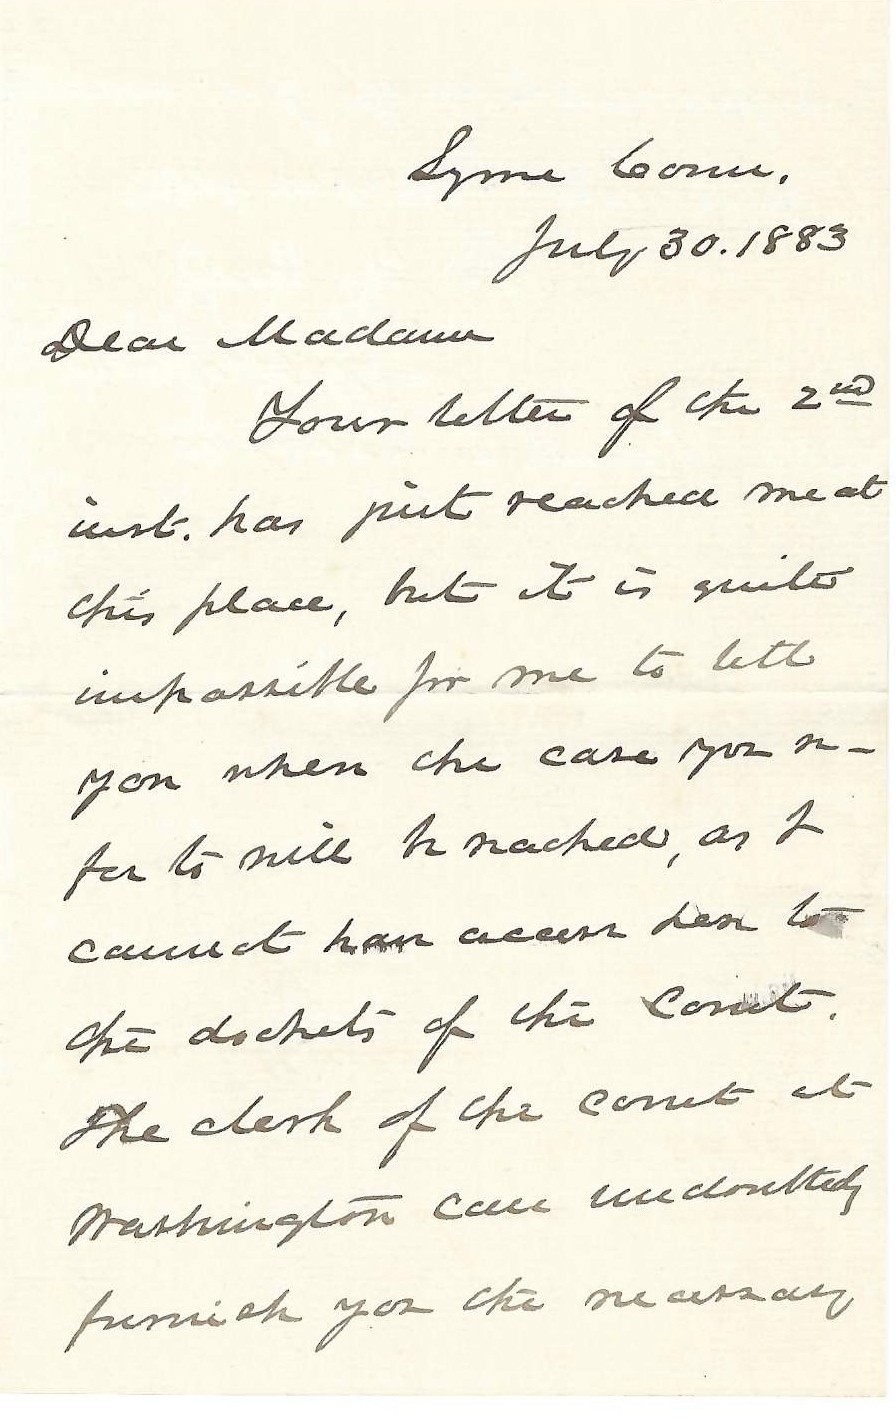 Lyme Conn.
July 30. 1883
Dear Madam
Your letter of the 2nd
inst. has just reached me at
this place, but it is quite
impossible for me to tell
you when the case you re-
fer to will be reached, as I
cannot have access here to
the dockets of the Court.
The clerk of the Court at
Washington can undoubtedly
furnish you the necessary